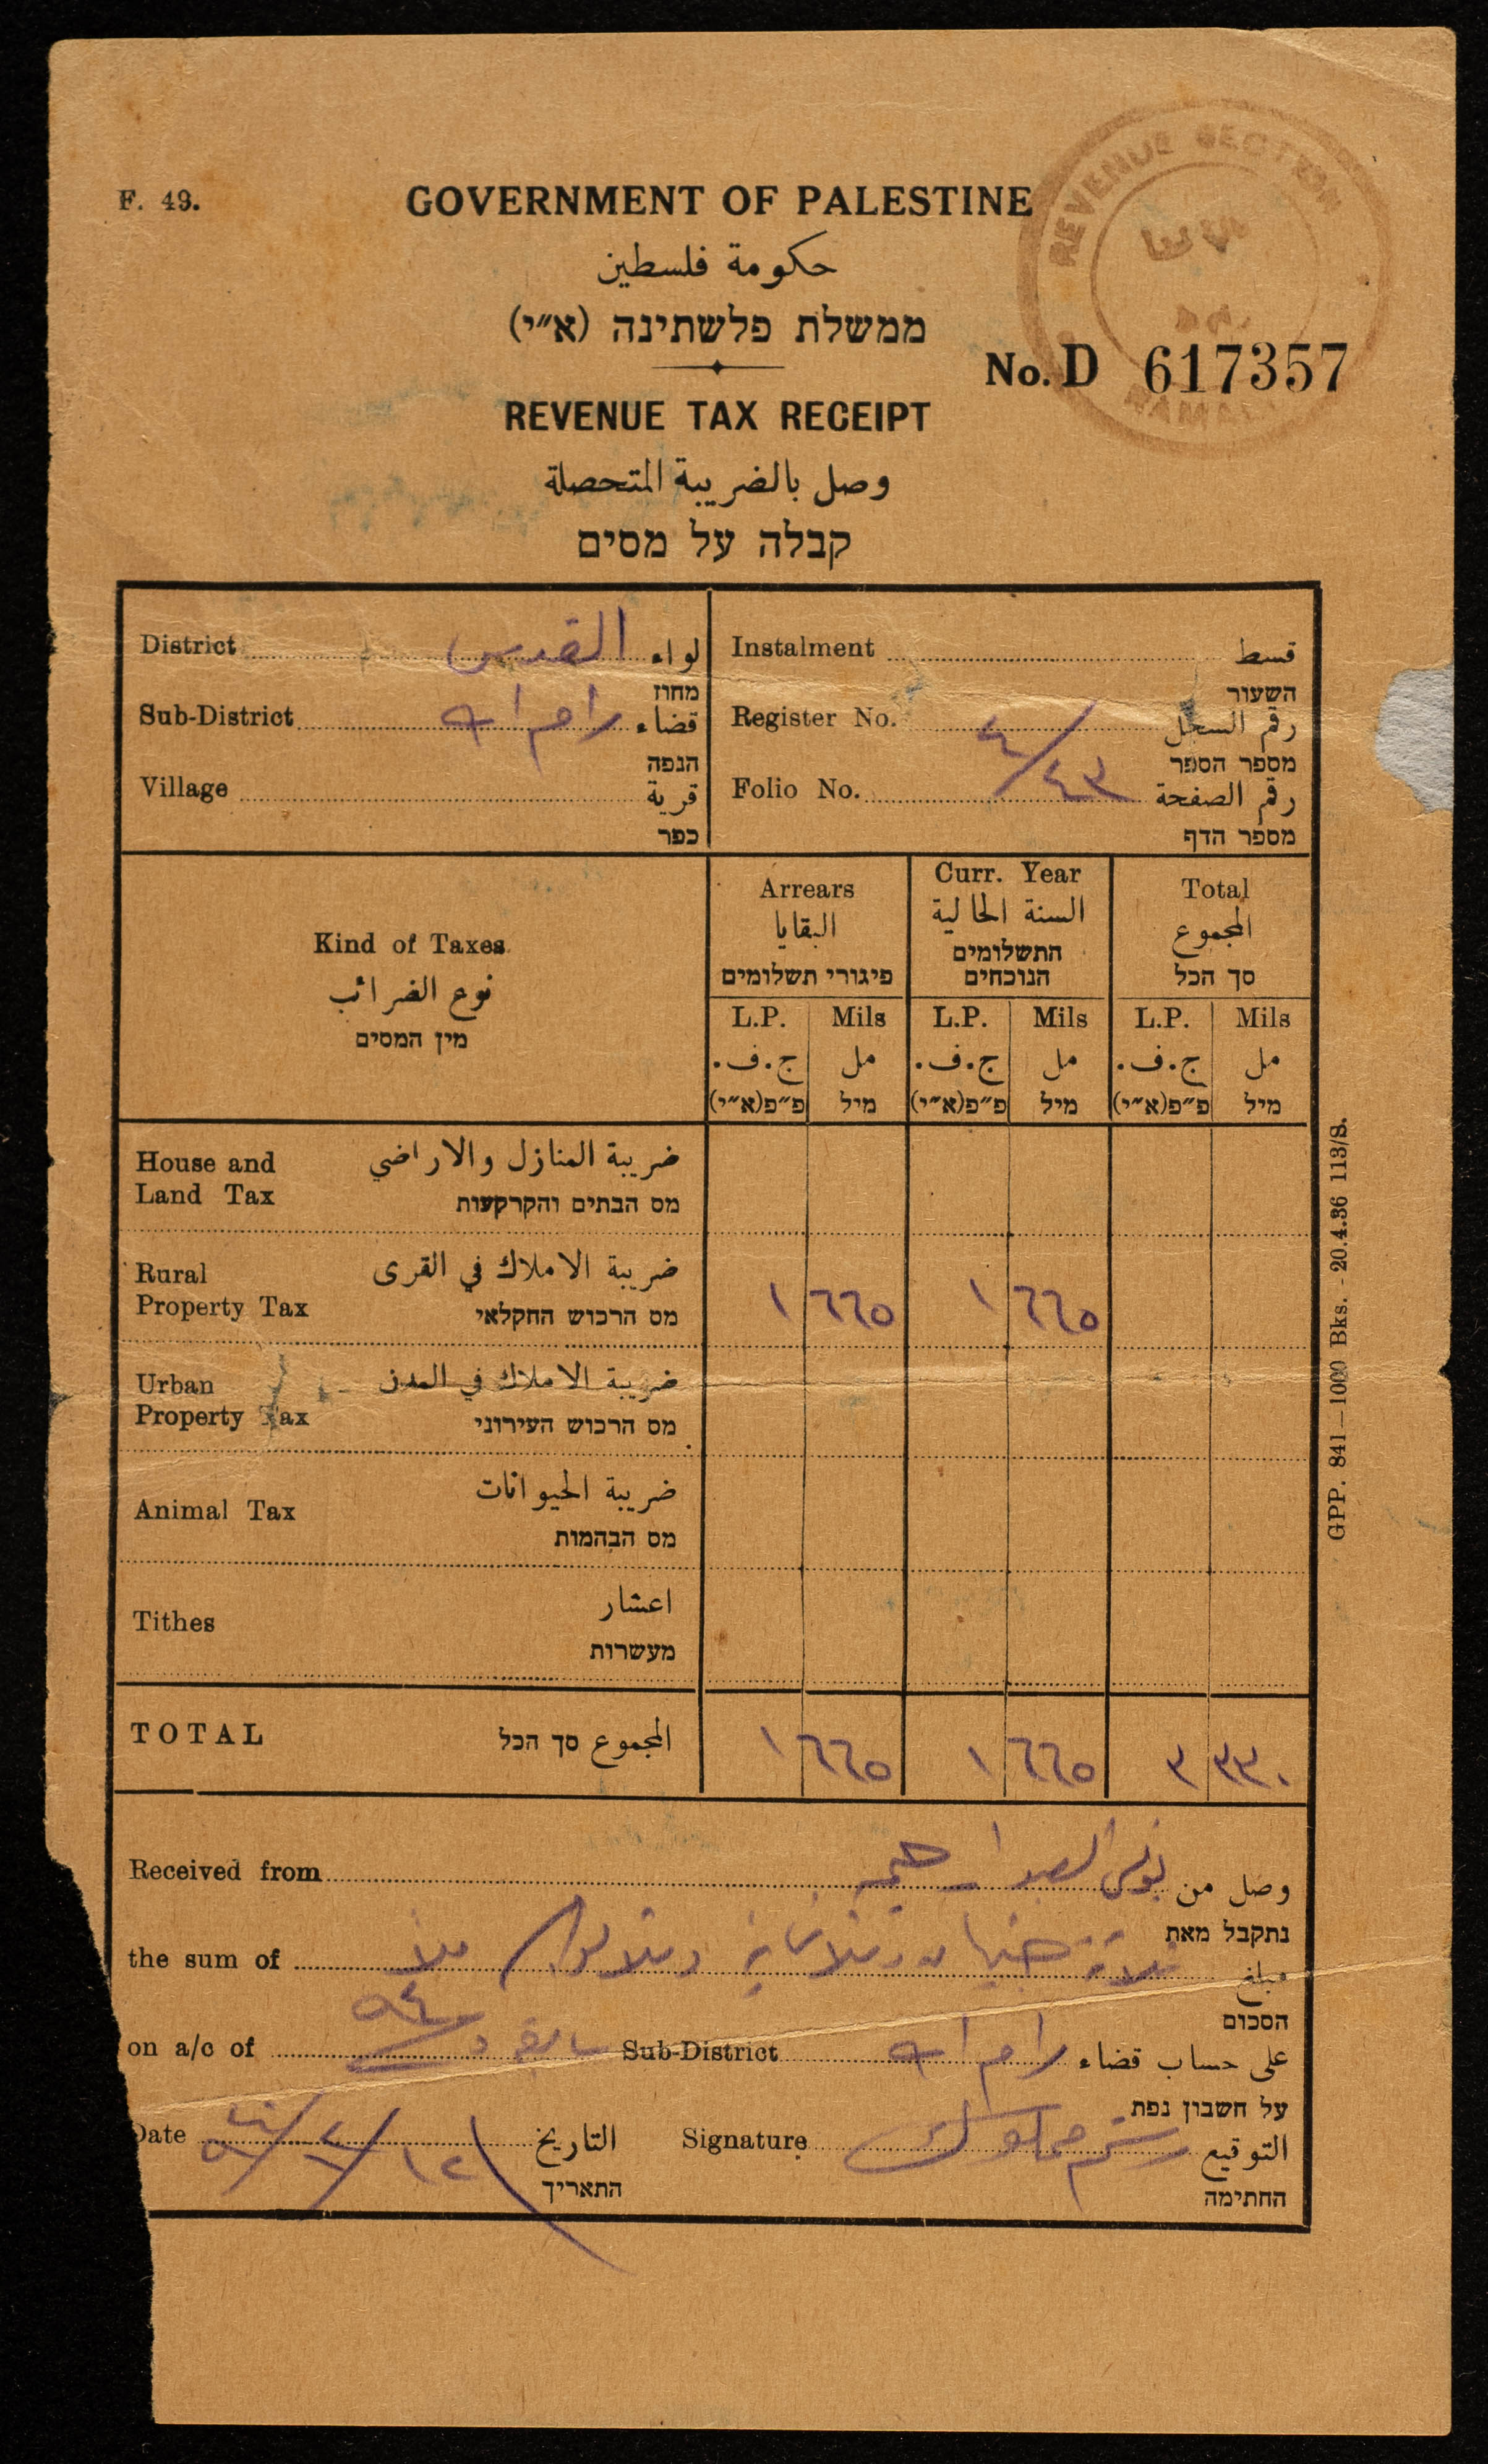 REVENUE SECTION
F. 49.
GOVERNMENT OF PALESTINE
حكومة فلسطين
ממשלת פלשתינה (א״י)
No. D 617357
REVENUE TAX RECEIPT
وصل بالضريبة المتحصلة
קבלה על מסים
District القدس لواء
מחוז
Sub-District رام الله قضاء
הנפה
Village قرية
כפר
Instalment قسط
השעור
Register No. ٤ رقم السجل
מספר הספר
Folio No. ٤٣ رقم الصفحة
מספר הדף
Kind of Taxes
نوع الضرائب
מין המסים
Arrears
البقايا
פיגורי תשלומים
Curr. Year
السنة الحالية
התשלומים
הנוכחים
Total
المجموع
סך הכל
L.P. Mils L.P. Mils L.P. Mils
ج.ف. مل ج.ف. مل ج.ف. مل
פ״פ(א״י) מיל פ״פ(א״י) מיל פ״פ(א״י) מיל
House and ضريبة المنازل والاراضي
Land Tax מס הבתים והקרקעות
Rural ضريبة الاملاك في القرى
Property Tax מס הרכוש החקלאי
١ ٦٦٥ ١ ٦٦٥
Urban ضريبة الاملاك في المدن
Property Tax מס הרכוש העירוני
Animal Tax ضريبة الحيوانات
מס הבהמות
Tithes اعشار
מעשרות
TOTAL المجموع סך הכל ١ ٦٦٥ ١ ٦٦٥ ٣ ٣٣٠
Received from وصل من
נתקבל מאת
the sum of ثلاثة جنيهات وثلاثماية وثلاثون ملا مبلغ
הסכום
on a/c of Sub-District رام الله على حساب قضاء
על חשבון נפת
Date التاريخ Signature التوقيع
התאריך החתימה
GPP. 841—1000 Bks. - 20.4.36 113/S.